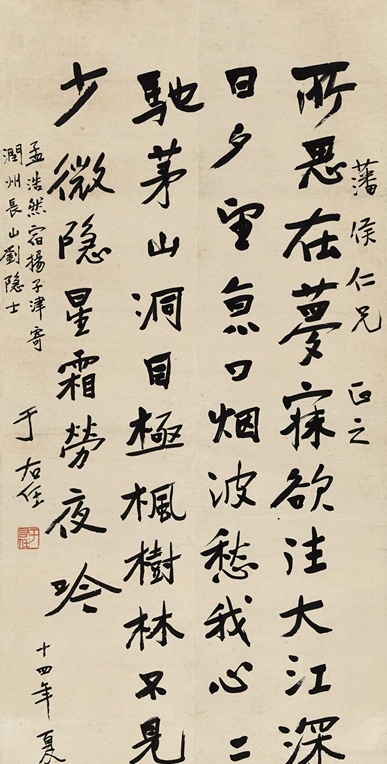 藩侯仁兄 正之
所思在夢寐欲往大江深
日夕望京口烟波愁我心二
馳茅山洞目極楓樹林不見
少微隐星霜勞夜吟
孟浩然宿揚子津寄
潤州長山劉隐士
于右任
十四年夏